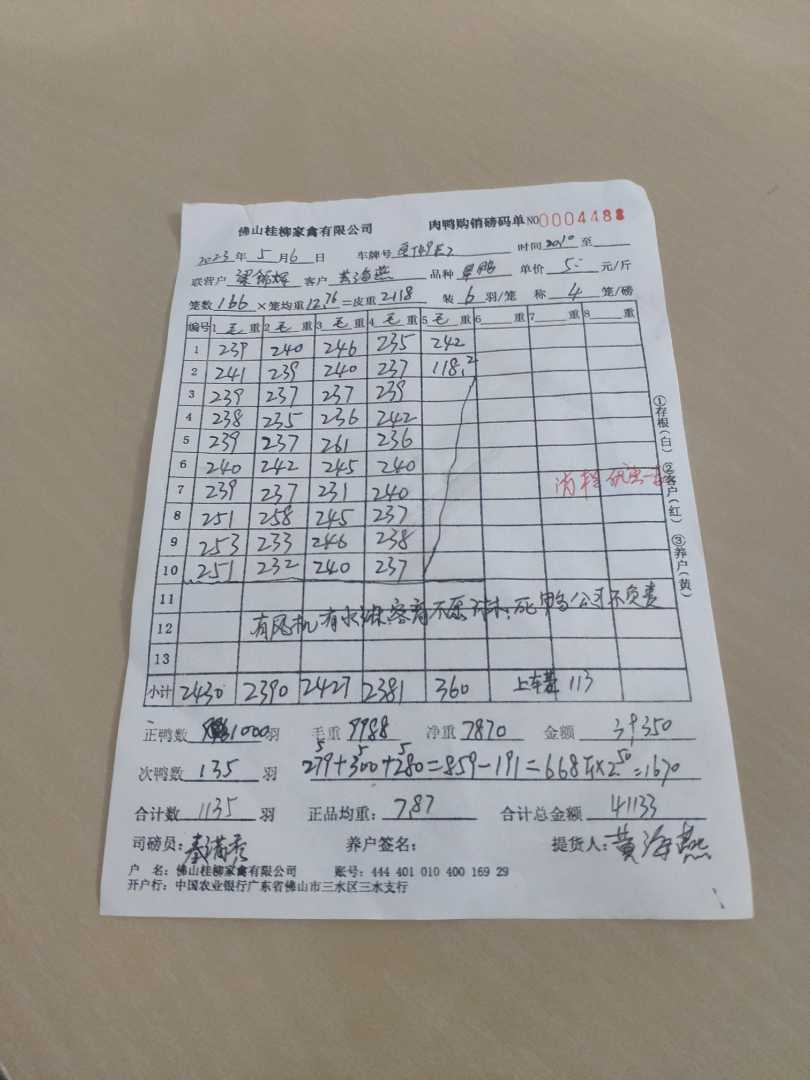 佛山桂柳家禽有限公司 肉鸭购销磅码单 NO 0004488
2023 年 5 月 6 日 车牌号 时间 2010 至
联营户 梁锦辉 客户 黄海燕 品种 单价 5.- 元/斤
笼数 166 ×笼均重 12.76 =皮重 2118 装 6 羽/笼 称 4 笼/磅
编号 1 毛 重 2 毛 重 3 毛 重 4 毛 重 5 毛 重 6 重 7 重 8 重
1 239 240 246 235 242
2 241 239 240 237 118.2
3 239 237 237 239
4 238 235 236 242
5 239 237 261 236
6 240 242 245 240
7 239 237 231 240
8 251 258 245 237
9 253 233 246 238
10 251 232 240 237
11
12 有风机有水 客商不愿 死鸭公司不负责
13
小计 2430 2390 2427 2381 360 上车 113
①存根(白) ②客户(红) ③养户(黄)
正鸭数 1000 羽 毛重 9988 净重 7870 金额 39350
次鸭数 135 羽 279.5+300.5+280.5=859-191=668斤×2.50=1670
合计数 1135 羽 正品均重: 7.87 合计总金额 41133
司磅员: 秦满秀 养户签名: 提货人: 黄海燕
户 名: 佛山桂柳家禽有限公司 账号: 444 401 010 400 169 29
开户行: 中国农业银行广东省佛山市三水区三水支行